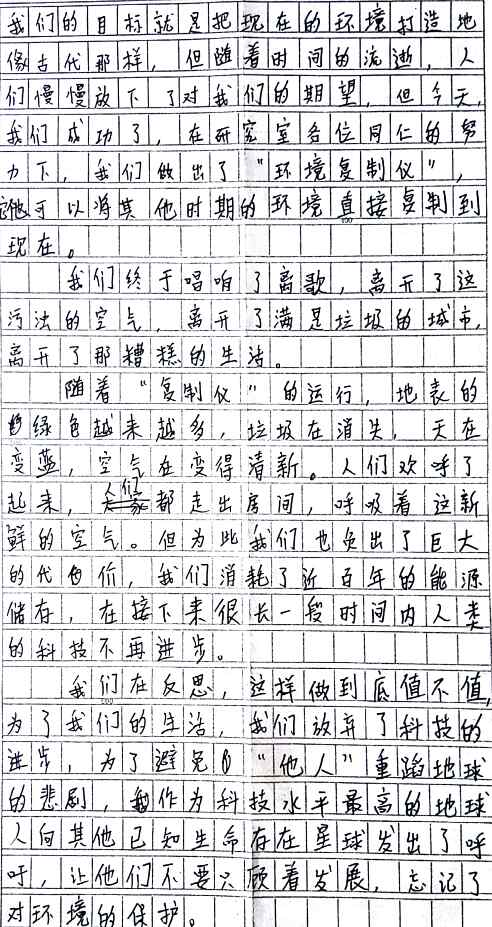 我们的目标就是把现在的环境打造地
像古代那样，但随着时间的流逝，人
们慢慢放下了对我们的期望，但今天，
我们成功了，在研究室各位同仁的努
力下，我们做出了“环境复制仪”，
它他可以将其他时期的环境直接复制到
现在。
我们终于唱响了离歌，离开了这
污浊的空气，离开了满是垃圾的城市，
离开了那糟糕的生活。
随着“复制仪”的运行，地表的
绿色越来越多，垃圾在消失，天在
变蓝，空气在变得清新。人们欢呼了
起来，人们都走出房间，呼吸着这新
鲜的空气。但为此我们也负出了巨大
的代价，我们消耗了近百年的能源
储存，在接下来很长一段时间内人类
的科技不再进步。
我们在反思，这样做到底值不值，
为了我们的生活，我们放弃了科技的
进步，为了避免“他人”重蹈地球
的悲剧，作为科技水平最高的地球
人向其他已知生命存在星球发出了呼
吁，让他们不要只顾着发展，忘记了
对环境的保护。